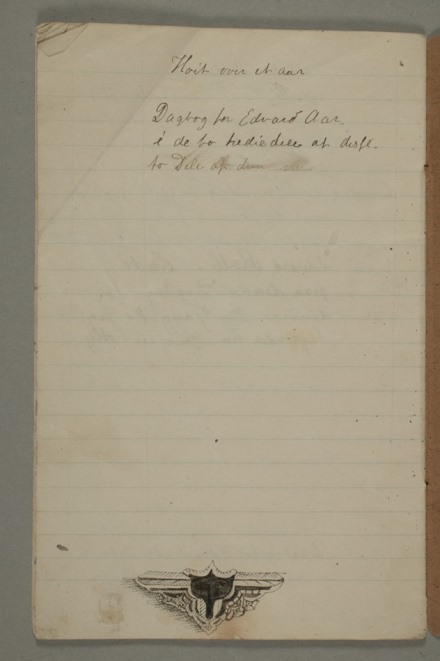 Hoit over et aar
Dagbog for Edvard Aar
i de to trediedele af desse
to Dele af den